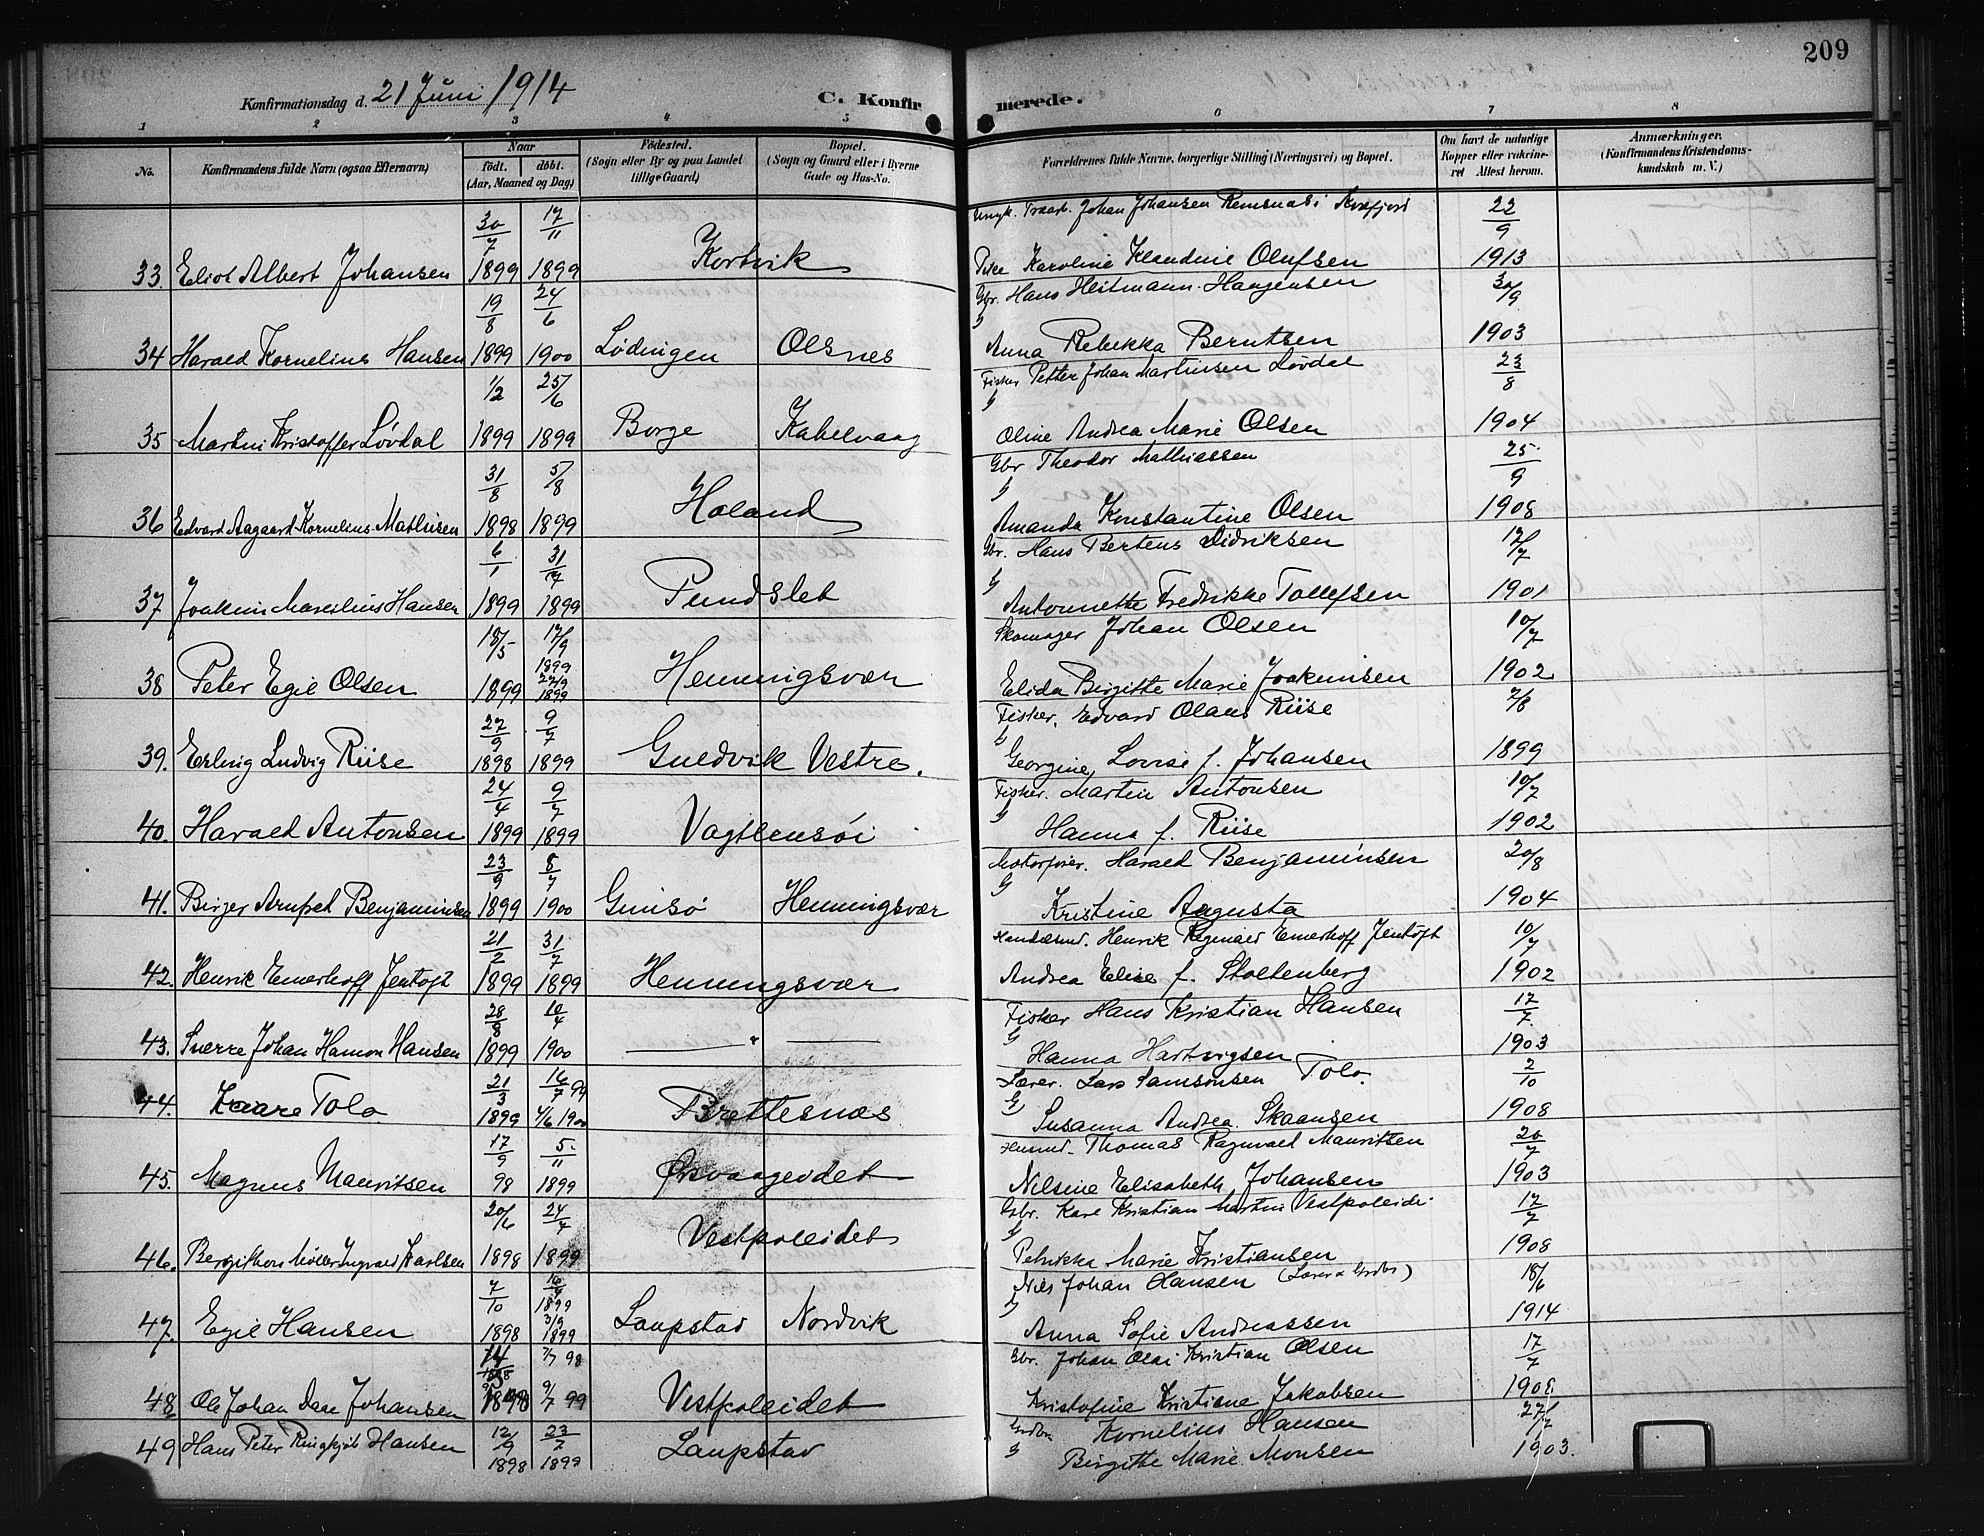 209
Konfirmationsdag d. 21 Juni 1914 C. Konfirmerede.
1 2 3 4 5 6 7 8
No. Konfirmandens fulde Navn (ogsaa Efternavn) Naar født. døbt. (Aar, Maaned og Dag) Fødested. (Sogn eller By og paa Landet tillige Gaard) Bopæl. (Sogn og Gaard eller i Byerne Gade og Hus-No. Forældrenes fulde Navne, borgerlige Stilling (Næringsvei) og Bopæl. Om havt de naturlige Kopper eller vakcineret Attest herom. Anmærkninger. (Konfirmandens Kristendomskundskab m. V.)
30/7 17/11 Johan Johansen 22/9
33. Eliot Albert Johansen 1899 1899 Kortvik Pike Karoline Klaudine Olufsen 1913
19/8 24/6 Gbr. Hans Heitmann Haagensen 30/9
34 Harald Kornelius Hansen 1899 1900 Lødingen Olsnes Anna Rebekka Berntsen 1903
1/2 25/6 Fisker Petter Johan Martinsen Løvdal 23/8
35 Martin Kristoffer Løvdal 1899 1899 Borge Kabelvaag Oline Andrea Marie Olsen 1904
31/8 5/8 Gbr Theodor Mathiassen 25/9
36 Edvard Aagaard Kornelius Mathisen 1898 1899 Holand Amanda Konstantine Olsen 1908
6/1 31/7 Gbr. Hans Bertens Didriksen 17/7
37 Joakim Marelius Hansen 1899 1899 Pundslet Antonnette Fredrikke Tollefsen 1901
18/5 17/9 1899 Skomager Johan Olsen 10/7
38 Peter Egil Olsen 1899 1899 Henningsvær Elida Birgitte Marie Joakimsen 1902
27/9 9/7 Fisker. Edvard Olaus Riise 7/8
39. Erling Ludvig Riise 1898 1899 Guldvik Vestre. Georgine Lovise f. Johansen 1899
24/4 9/7 Fisker. Martin Antonsen 10/7
40. Harald Antonsen 1899 1899 Vagtlensøi Hanna f. Riise 1902
23/9 8/7 Motorfører. Harald Benjaminsen 20/8
41. Birger Arnfret Benjaminsen 1899 1900 Gimsø Henningsvær Kristine Augusta 1904
21/2 31/7 Handelsmd. Henrik Ragnvald Emerhoff Jentoft 10/7
42. Henrik Emerhoff Jentoft 1899 1899 Henningsvær Andrea Elise f. Stoltenberg 1902
28/8 10/4 Fisker Hans Kristian Hansen 17/7
43. Sverre Johan Hamon Hansen 1899 1900 — " — Hanna Hartvigsen 1903
21/3 16/7 99 Lærer. Lars Samsonsen Tolo. 2/10
44. Kaare Tolo 1899 4/6 1900 Brettesnes Susanna Andrea Skaansen 1908
17/9 5/11 Thomas Ragnvald Mauritsen 20/7
45. Magnus Mauritsen 98 1899 Ørsvaageidet Nilsine Elisabeth Johansen 1903
20/6 24/7 Gbr. Karl Kristian Martin Vestpoleidet 17/7
46. Bergithon Møller Ingvald Karlsen 1898 1899 Vestpoleidet Petrikka Marie Kristiansen 1908
7/10 1899 Nils Johan Hansen (Lærer & Grdbr) 18/6
47. Egil Hansen 1898 3/9 1899 Laupstad Nordvik Anna Sofie Andreassen 1914
7/7 98 Gbr. Johan Olai Kristian Olsen 17/7
48. Ole Johan Johansen 1898 9/7 99 Vestpoleidet Kristofine Kristiane Jakobsen 1908.
12/9 23/7 Grdbr Kornelius Hansen 27/7
49 Hans Peter Ringkjøb Hansen 1898 1899 Laupstad Birgitte Marie Monsen 1903.